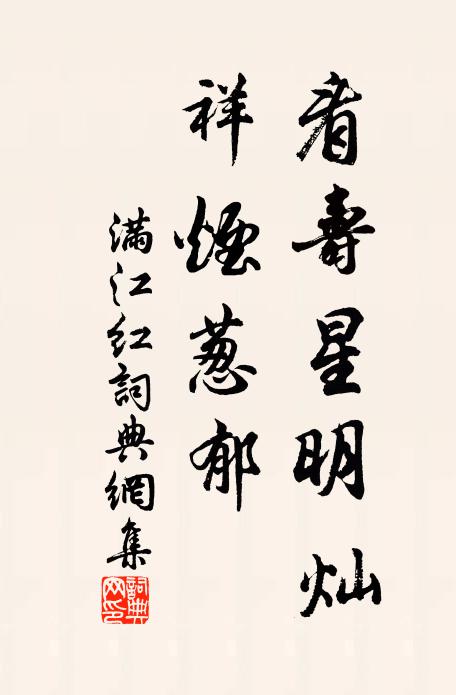 看壽星明灿
祥煙葱郁
满江红詞典網集
詞典网印